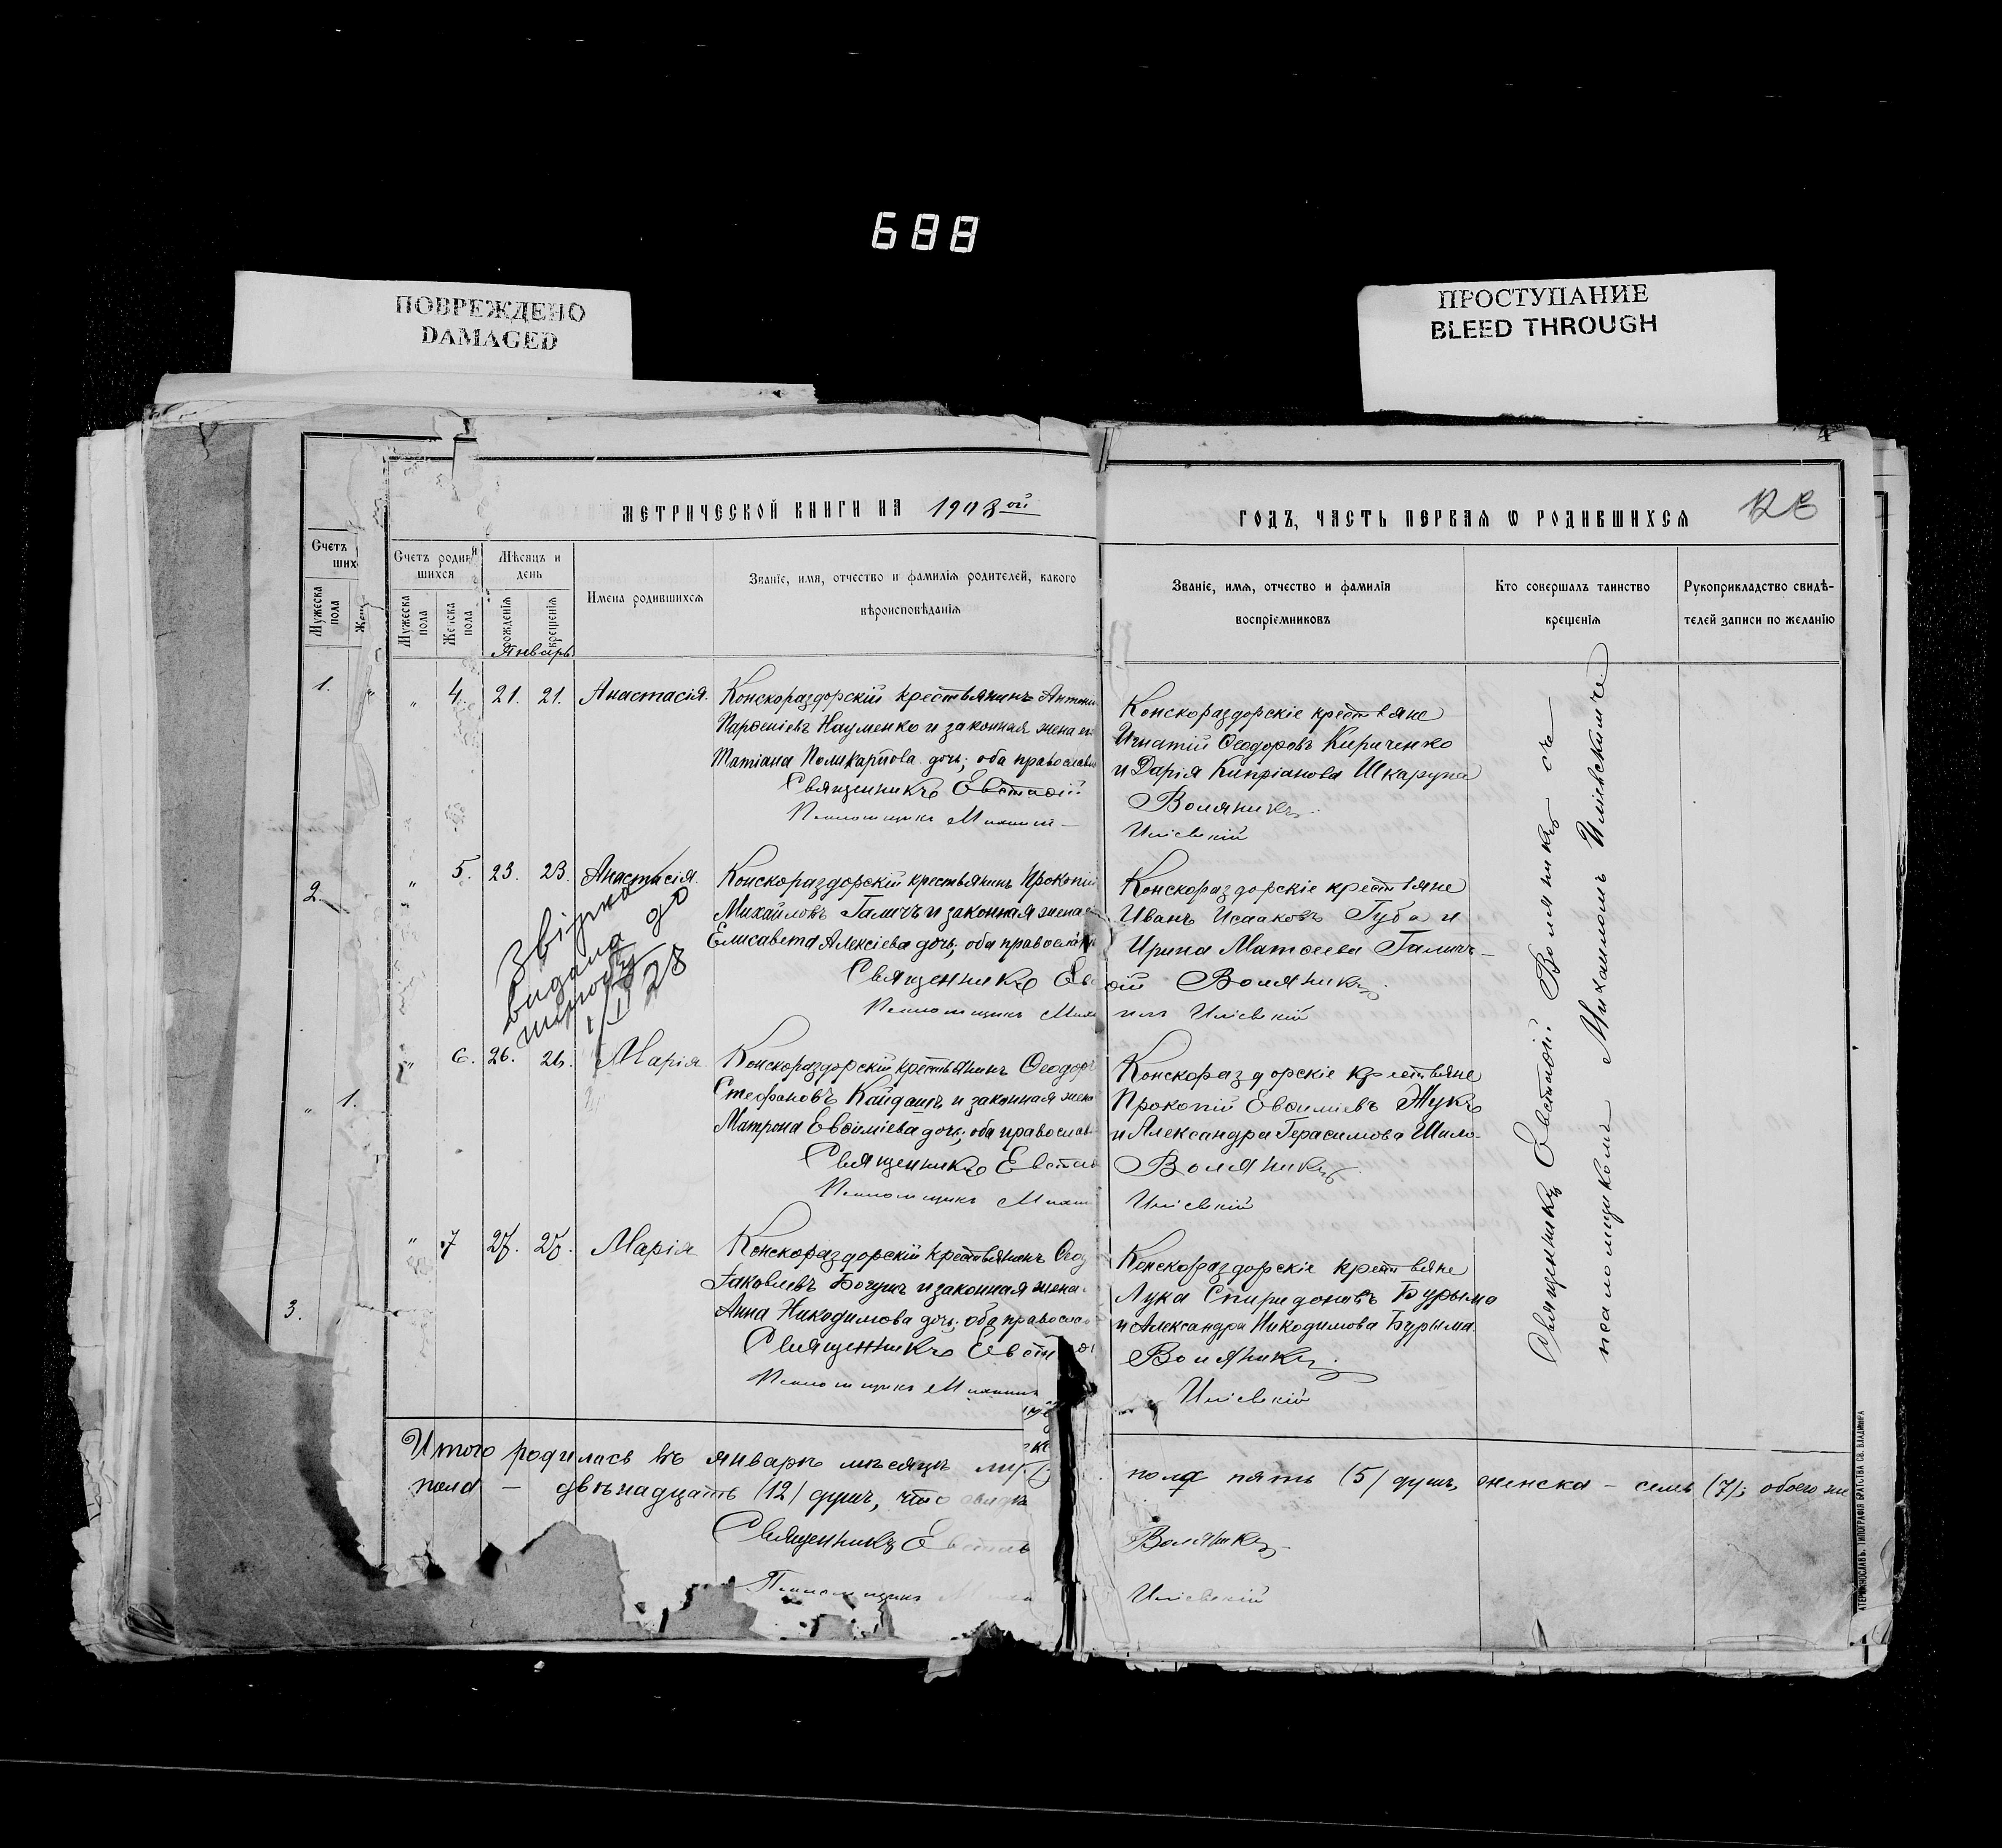 688
ПОВРЕЖДЕНО
DAMAGED
ПРОСТУПАНИЕ
BLEED THROUGH
4
МЕТРИЧЕСКОЙ КНИГИ НА 1908 ой
ГОДЪ, ЧАСТЬ ПЕРВАЯ Ѡ РОДИВШИХСЯ
Счетъ
ших
Мужеска пола
Жен
1.
"
2.
" 1.
3.
Счетъ роди
шихся
Мужеска пола
Женска пола
Мѣсяцъ и
день
рожденія
крещенія
Имена родившихся
Званіе, имя, отчество и фамилія родителей, какого
вѣроисповѣданія
Званіе, имя, отчество и фамилія
воспріемниковъ
Кто совершалъ таинство
крещенія
Рукоприкладство свидѣ-
телей записи по желанію
Январь
" 4. 21. 21. Анастасія. Конскораздорскій крестьянинъ Антоні
Парѳеніевъ Науменко и законная жена ег
Татіана Поликарпова дочь; оба православн
Священникъ Евстаѳій
Псаломщикъ Михаил
Конскораздорскіе крестьяне
Игнатій Ѳеодоровъ Кириченко
и Дарія Кипріанова Шкарупа
Воляникъ
Иліевскій
" 5. 23. 23. Анастасія. Конскораздорскій крестьянинъ Прокопій
Михайловъ Галичъ и законная жена е
Елисавета Алексіева дочь; оба православн
Священникъ Евс
Псаломщикъ Миха
Конскораздорскіе крестьяне
Иванъ Исааковъ Губа и
Ирина Матѳеева Галичъ
ѳій Воляникъ
илъ Иліевскій
Звізка
видана до
шлюбу
28
" 6. 26. 26. Марія Конскораздорскій крестьянинъ Ѳеодоръ
Стефановъ Кайдашъ и законная жена
Матрона Евѳиміева дочь; оба православ
Священникъ Евстаѳ
Псаломщикъ Михаи
Конскораздорскіе крестьяне
Прокопій Евѳиміевъ Жукъ
и Александра Герасимова Шило.
Воляникъ
Иліевскій
" 7 27. 27. Марія Конскораздорскій крестьянинъ Ѳеод
Іаковлевъ Богушъ и законная жена
Анна Никодимова дочь; оба православ
Священникъ Евста
Псаломщикъ Михаил
Конскораздорскіе крестьяне
Лука Спиридоновъ Бурыма
и Александра Никодимова Бурыма.
Воляникъ
Иліевскій
Священникъ Евстаѳій Воляникъ съ
псаломщикомъ Михаиломъ Иліевскимъ
Итого родилась въ январѣ мѣсяцѣ
пола пять (5) душъ, женска – семь (7); обоего же
пола – двѣнадцать (12) душъ, что
Священникъ Евстаѳ
Воляникъ
Псаломщикъ Миха
Иліевскій
АТЕРИНОСЛАВЪ. ТИПОГРАФІЯ БРАТСТВА СВ. ВЛАДИМІРА